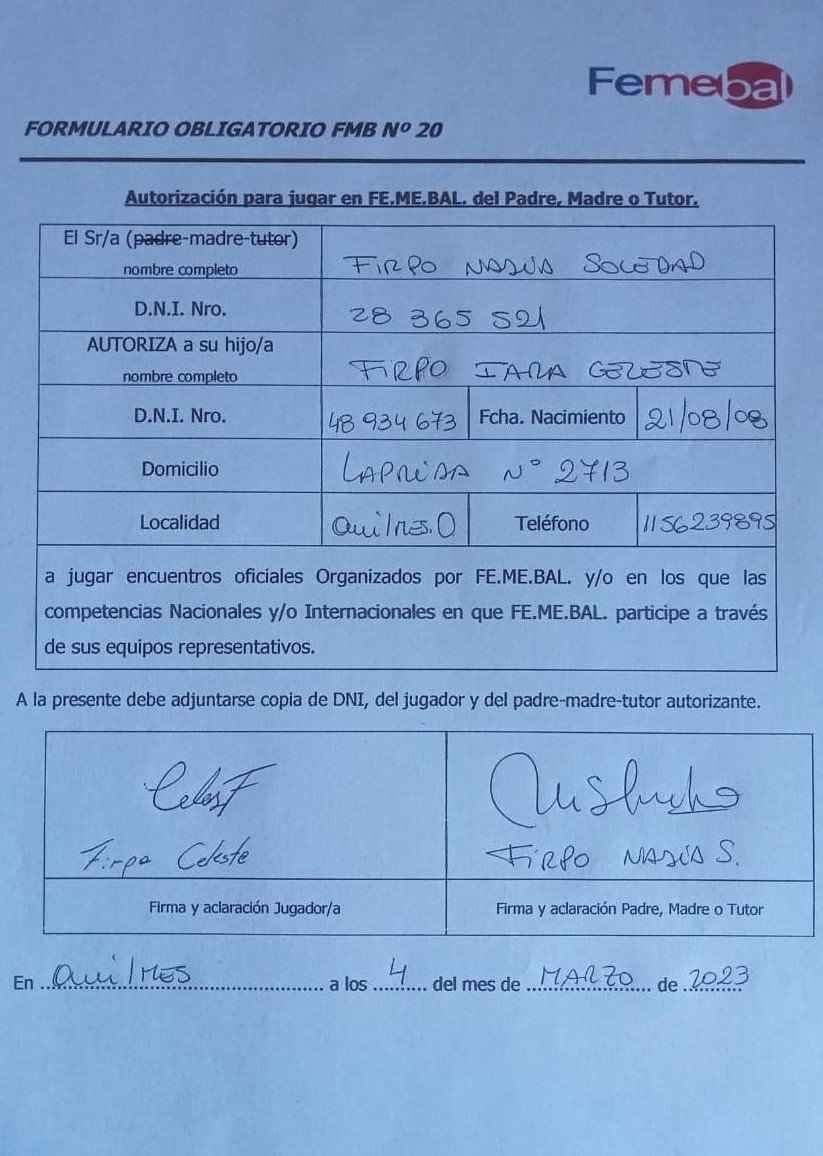 Femebal
FORMULARIO OBLIGATORIO FMB Nº 20
Autorización para jugar en FE.ME.BAL. del Padre, Madre o Tutor.
El Sr/a (padre-madre-tutor)
nombre completo
FIRPO NADIA SOLEDAD
D.N.I. Nro.
28 365 521
AUTORIZA a su hijo/a
nombre completo
FIRPO IARA CELESTE
D.N.I. Nro.
48 934 673
Fcha. Nacimiento
21/08/08
Domicilio
LAPRIDA Nº 2713
Localidad
Quilmes.O
Teléfono
1156239895
a jugar encuentros oficiales Organizados por FE.ME.BAL. y/o en los que las
competencias Nacionales y/o Internacionales en que FE.ME.BAL. participe a través
de sus equipos representativos.
A la presente debe adjuntarse copia de DNI, del jugador y del padre-madre-tutor autorizante.
CelesF
Firpo Celeste
FIRPO NADIA S.
Firma y aclaración Jugador/a
Firma y aclaración Padre, Madre o Tutor
En QuilMES a los 4 del mes de MARZO de 2023